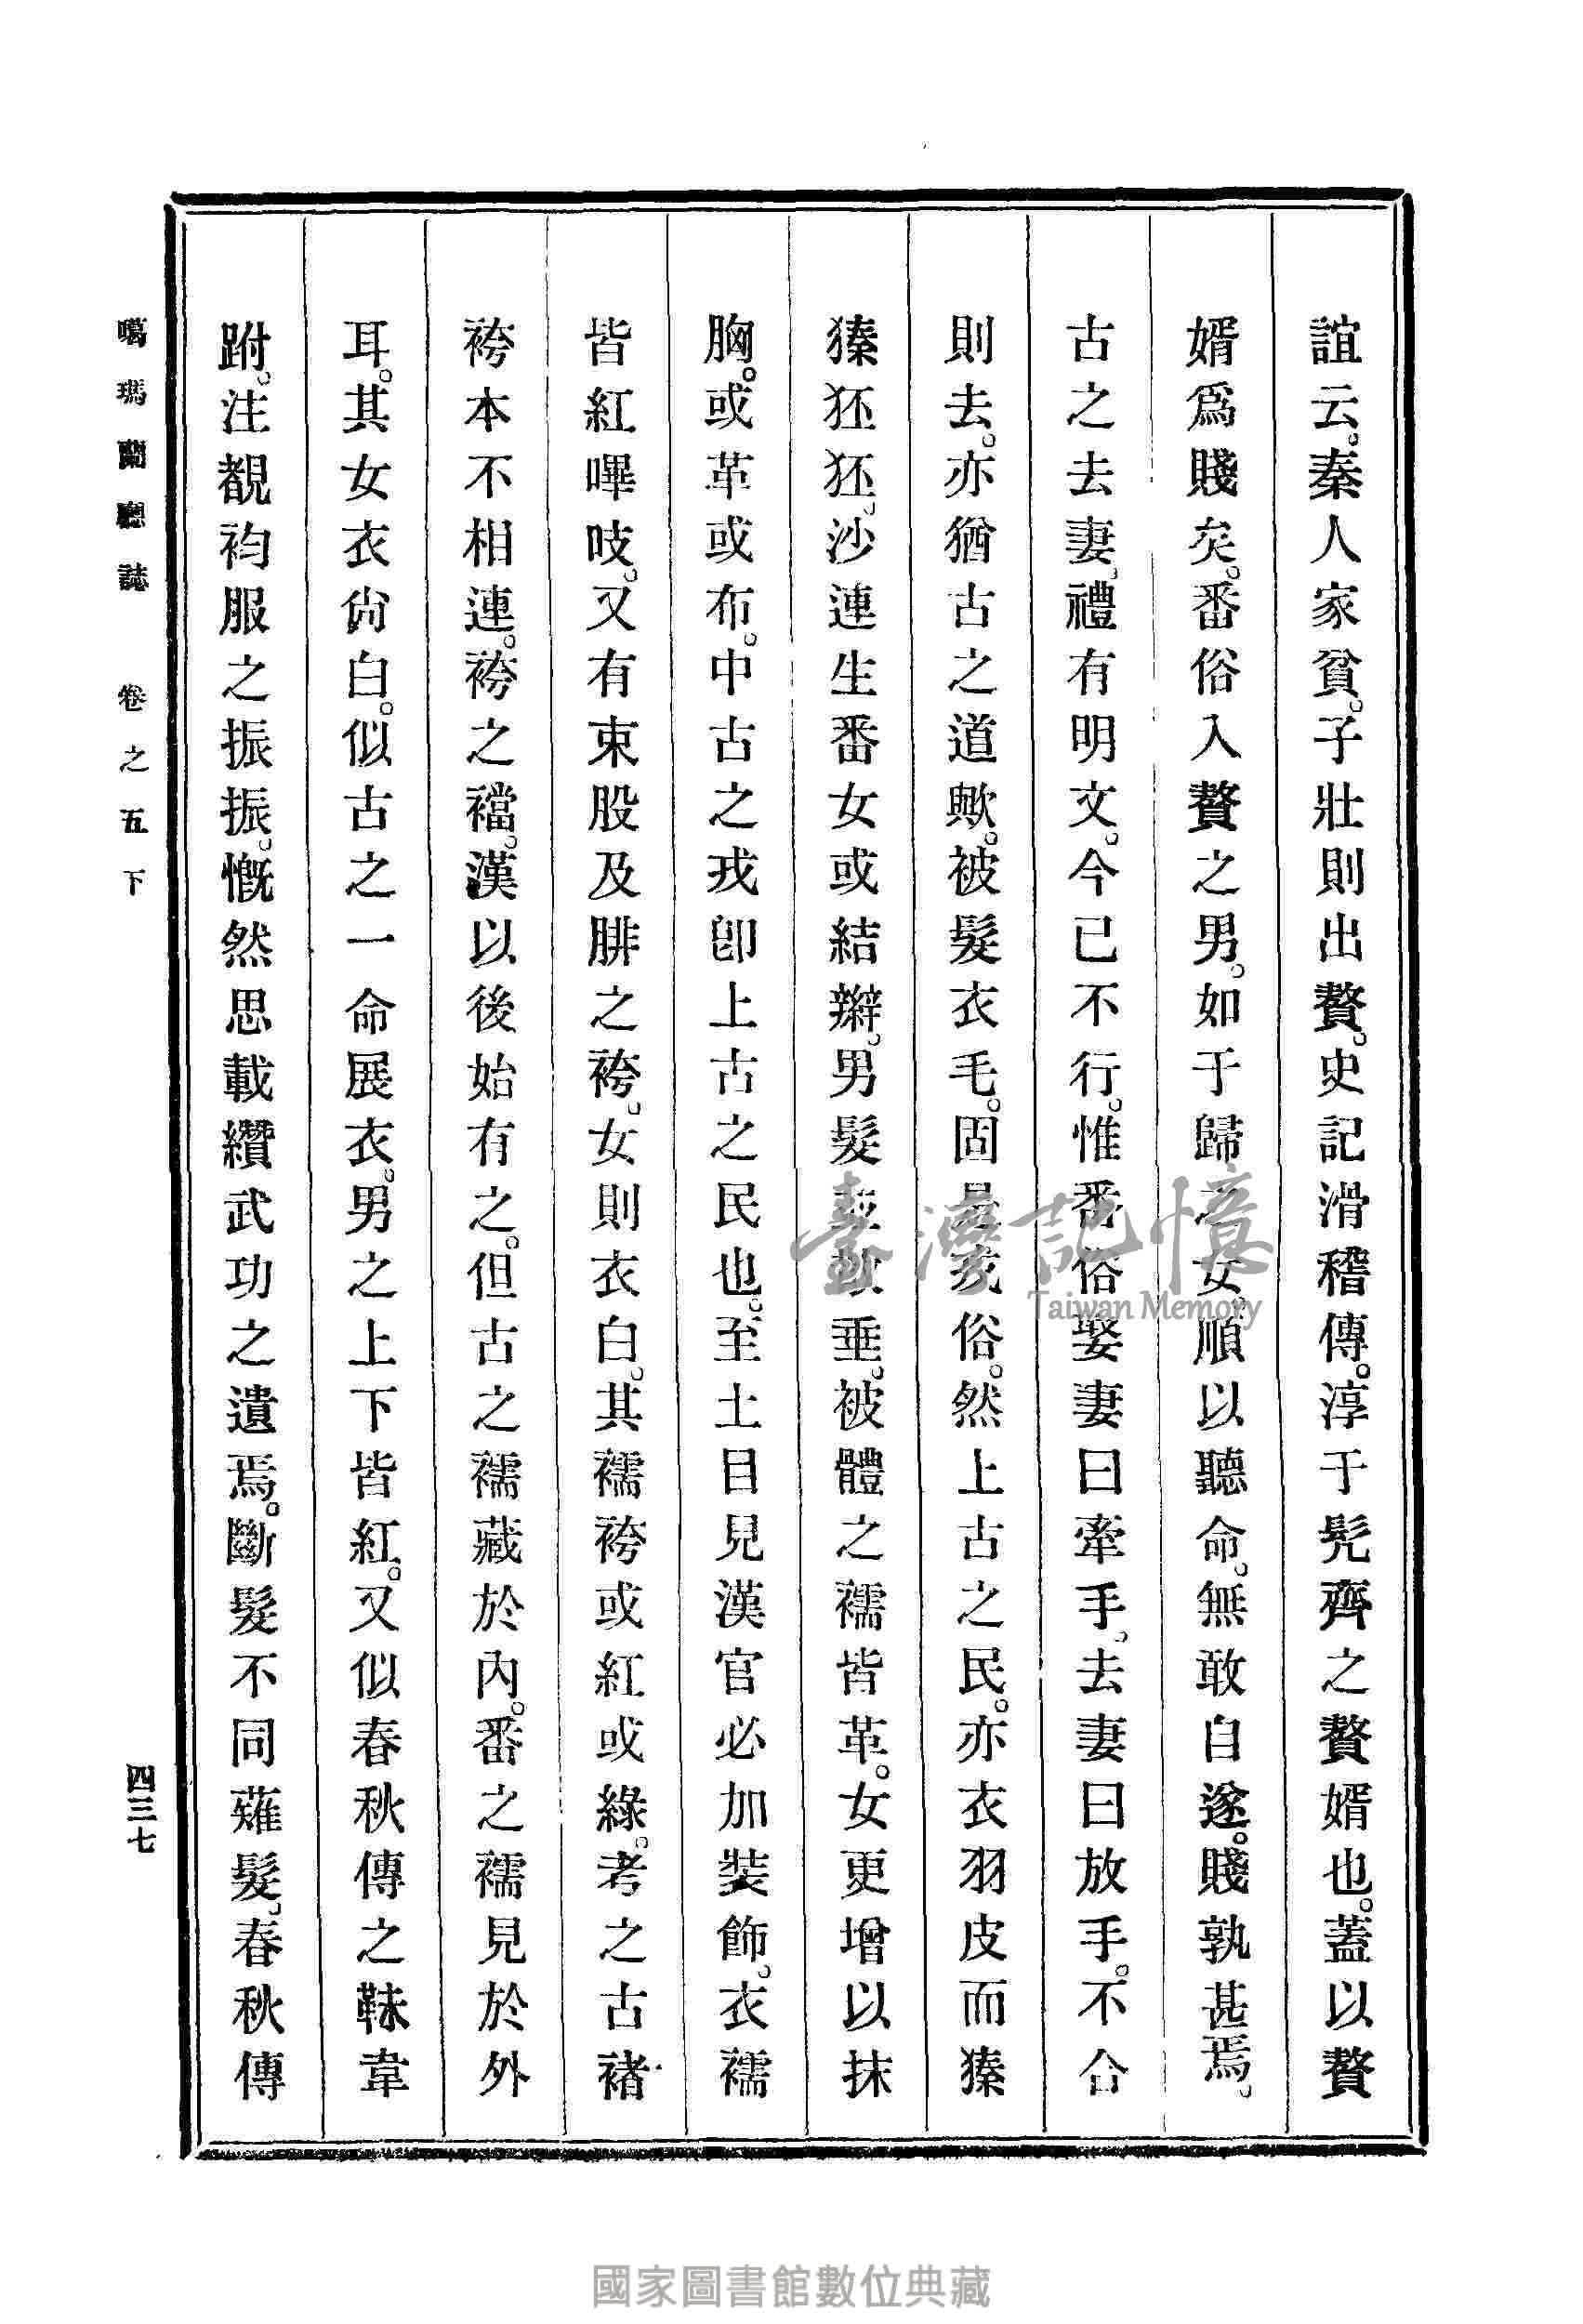 誼云。秦人家貧。子壯則出贅。史記滑稽傳。淳于髠齊之贅婿也。蓋以贅
婿爲賤矣。番俗入贅之男。如于歸之女。順以聽命。無敢自遂。賤孰甚焉。
古之去妻。禮有明文。今已不行。惟番俗娶妻曰牽手。去妻曰放手。不合
則去。亦猶古之道歟。被髮衣毛。固是戎俗。然上古之民。亦衣羽皮而獉
獉狉狉。沙連生番女或結辮。男髮並散垂。被體之襦皆革。女更增以抹
胸。或革或布。中古之戎卽上古之民也。至土目見漢官必加裝飾。衣襦
皆紅嗶吱。又有束股及腓之袴。女則衣白。其襦袴或紅或綠。考之古褚
袴本不相連。袴之襠。漢以後始有之。但古之襦藏於內。番之襦見於外
耳。其女衣尙白。似古之一命展衣。男之上下皆紅。又似春秋傳之韎韋
跗。注覩袀服之振振。慨然思載纘武功之遺焉。斷髮不同薙髮。春秋傳
噶瑪蘭廳誌 卷之五下
四三七
臺灣記憶
Taiwan Memory
國家圖書館數位典藏